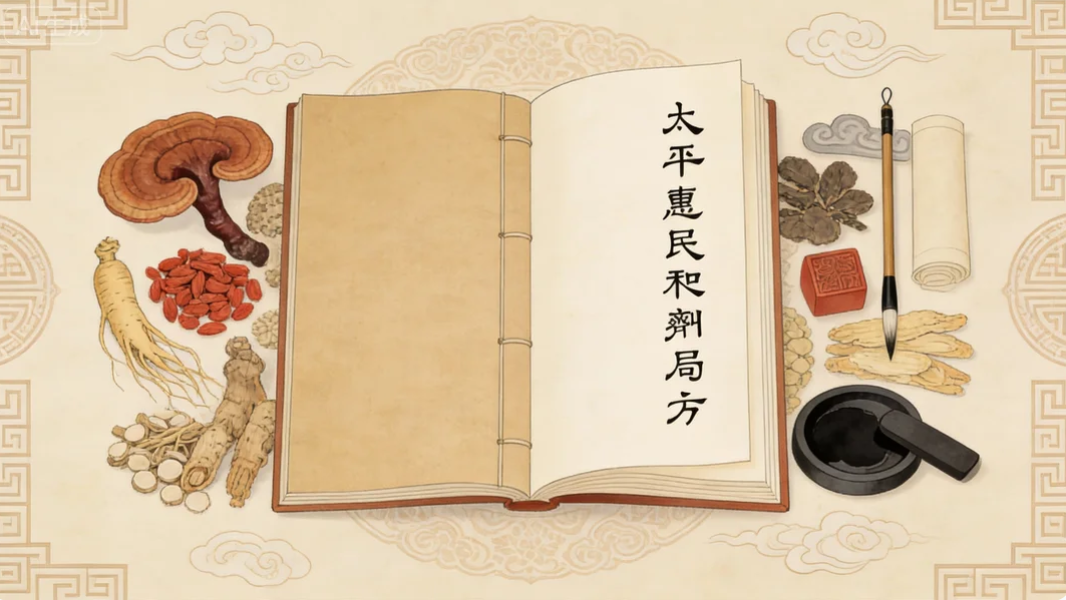 AI生成
太平惠民和劑局方